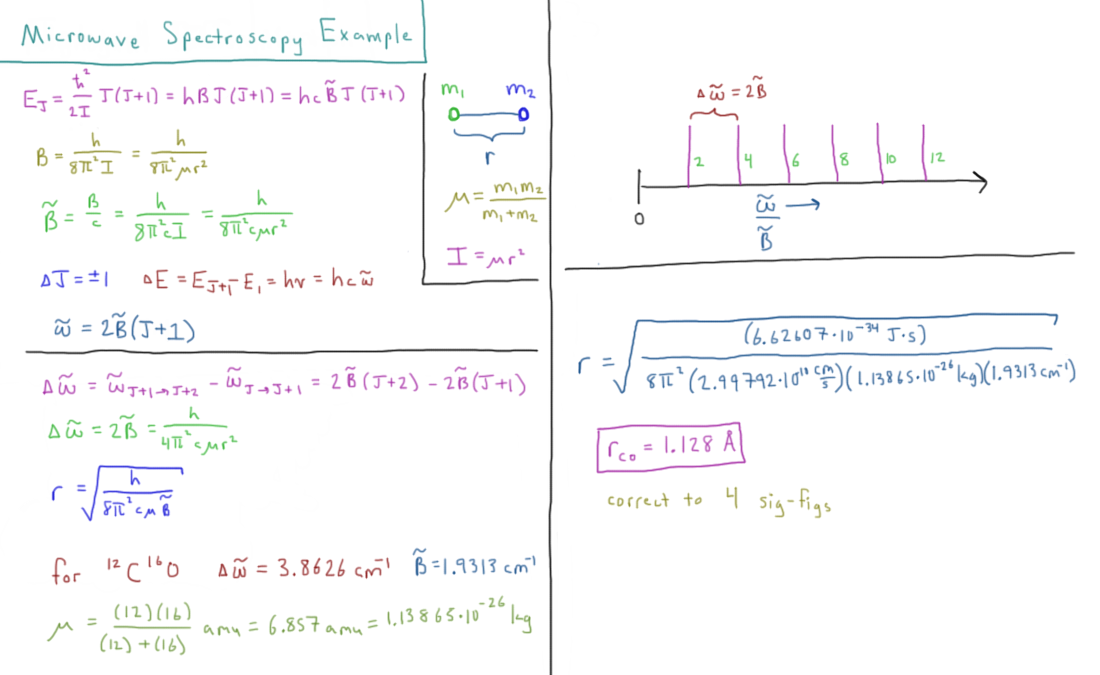 Microwave Spectroscopy Example
E_J = ħ²/2I J(J+1) = hBJ(J+1) = hcB̃J(J+1)
B = h/8π²I = h/8π²μr²
B̃ = B/c = h/8π²cI = h/8π²cμr²
ΔJ = ±1 ΔE = E_J+1 - E_1 = hν = hcω̃
ω̃ = 2B̃(J+1)
m₁ m₂
r
μ = m₁m₂/m₁+m₂
I = μr²
Δω̃ = ω̃_J+1→J+2 - ω̃_J→J+1 = 2B̃(J+2) - 2B̃(J+1)
Δω̃ = 2B̃ = h/4π²cμr²
r = √(h/8π²cμB̃)
for ¹²C¹⁶O Δω̃ = 3.8626 cm⁻¹ B̃=1.9313 cm⁻¹
μ = (12)(16)/(12)+(16) amu = 6.857 amu = 1.13865·10⁻²⁶ kg
Δω̃ = 2B̃
2 4 6 8 10 12
0
ω̃/B̃ →
r = √((6.62607·10⁻³⁴ J·s)/8π²(2.99792·10¹⁰ cm/s)(1.13865·10⁻²⁶ kg)(1.9313 cm⁻¹))
r_CO = 1.128 Å
correct to 4 sig-figs